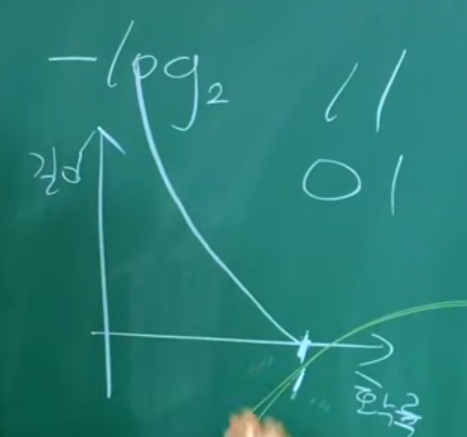 -log₂
11
01
길이
1
확률